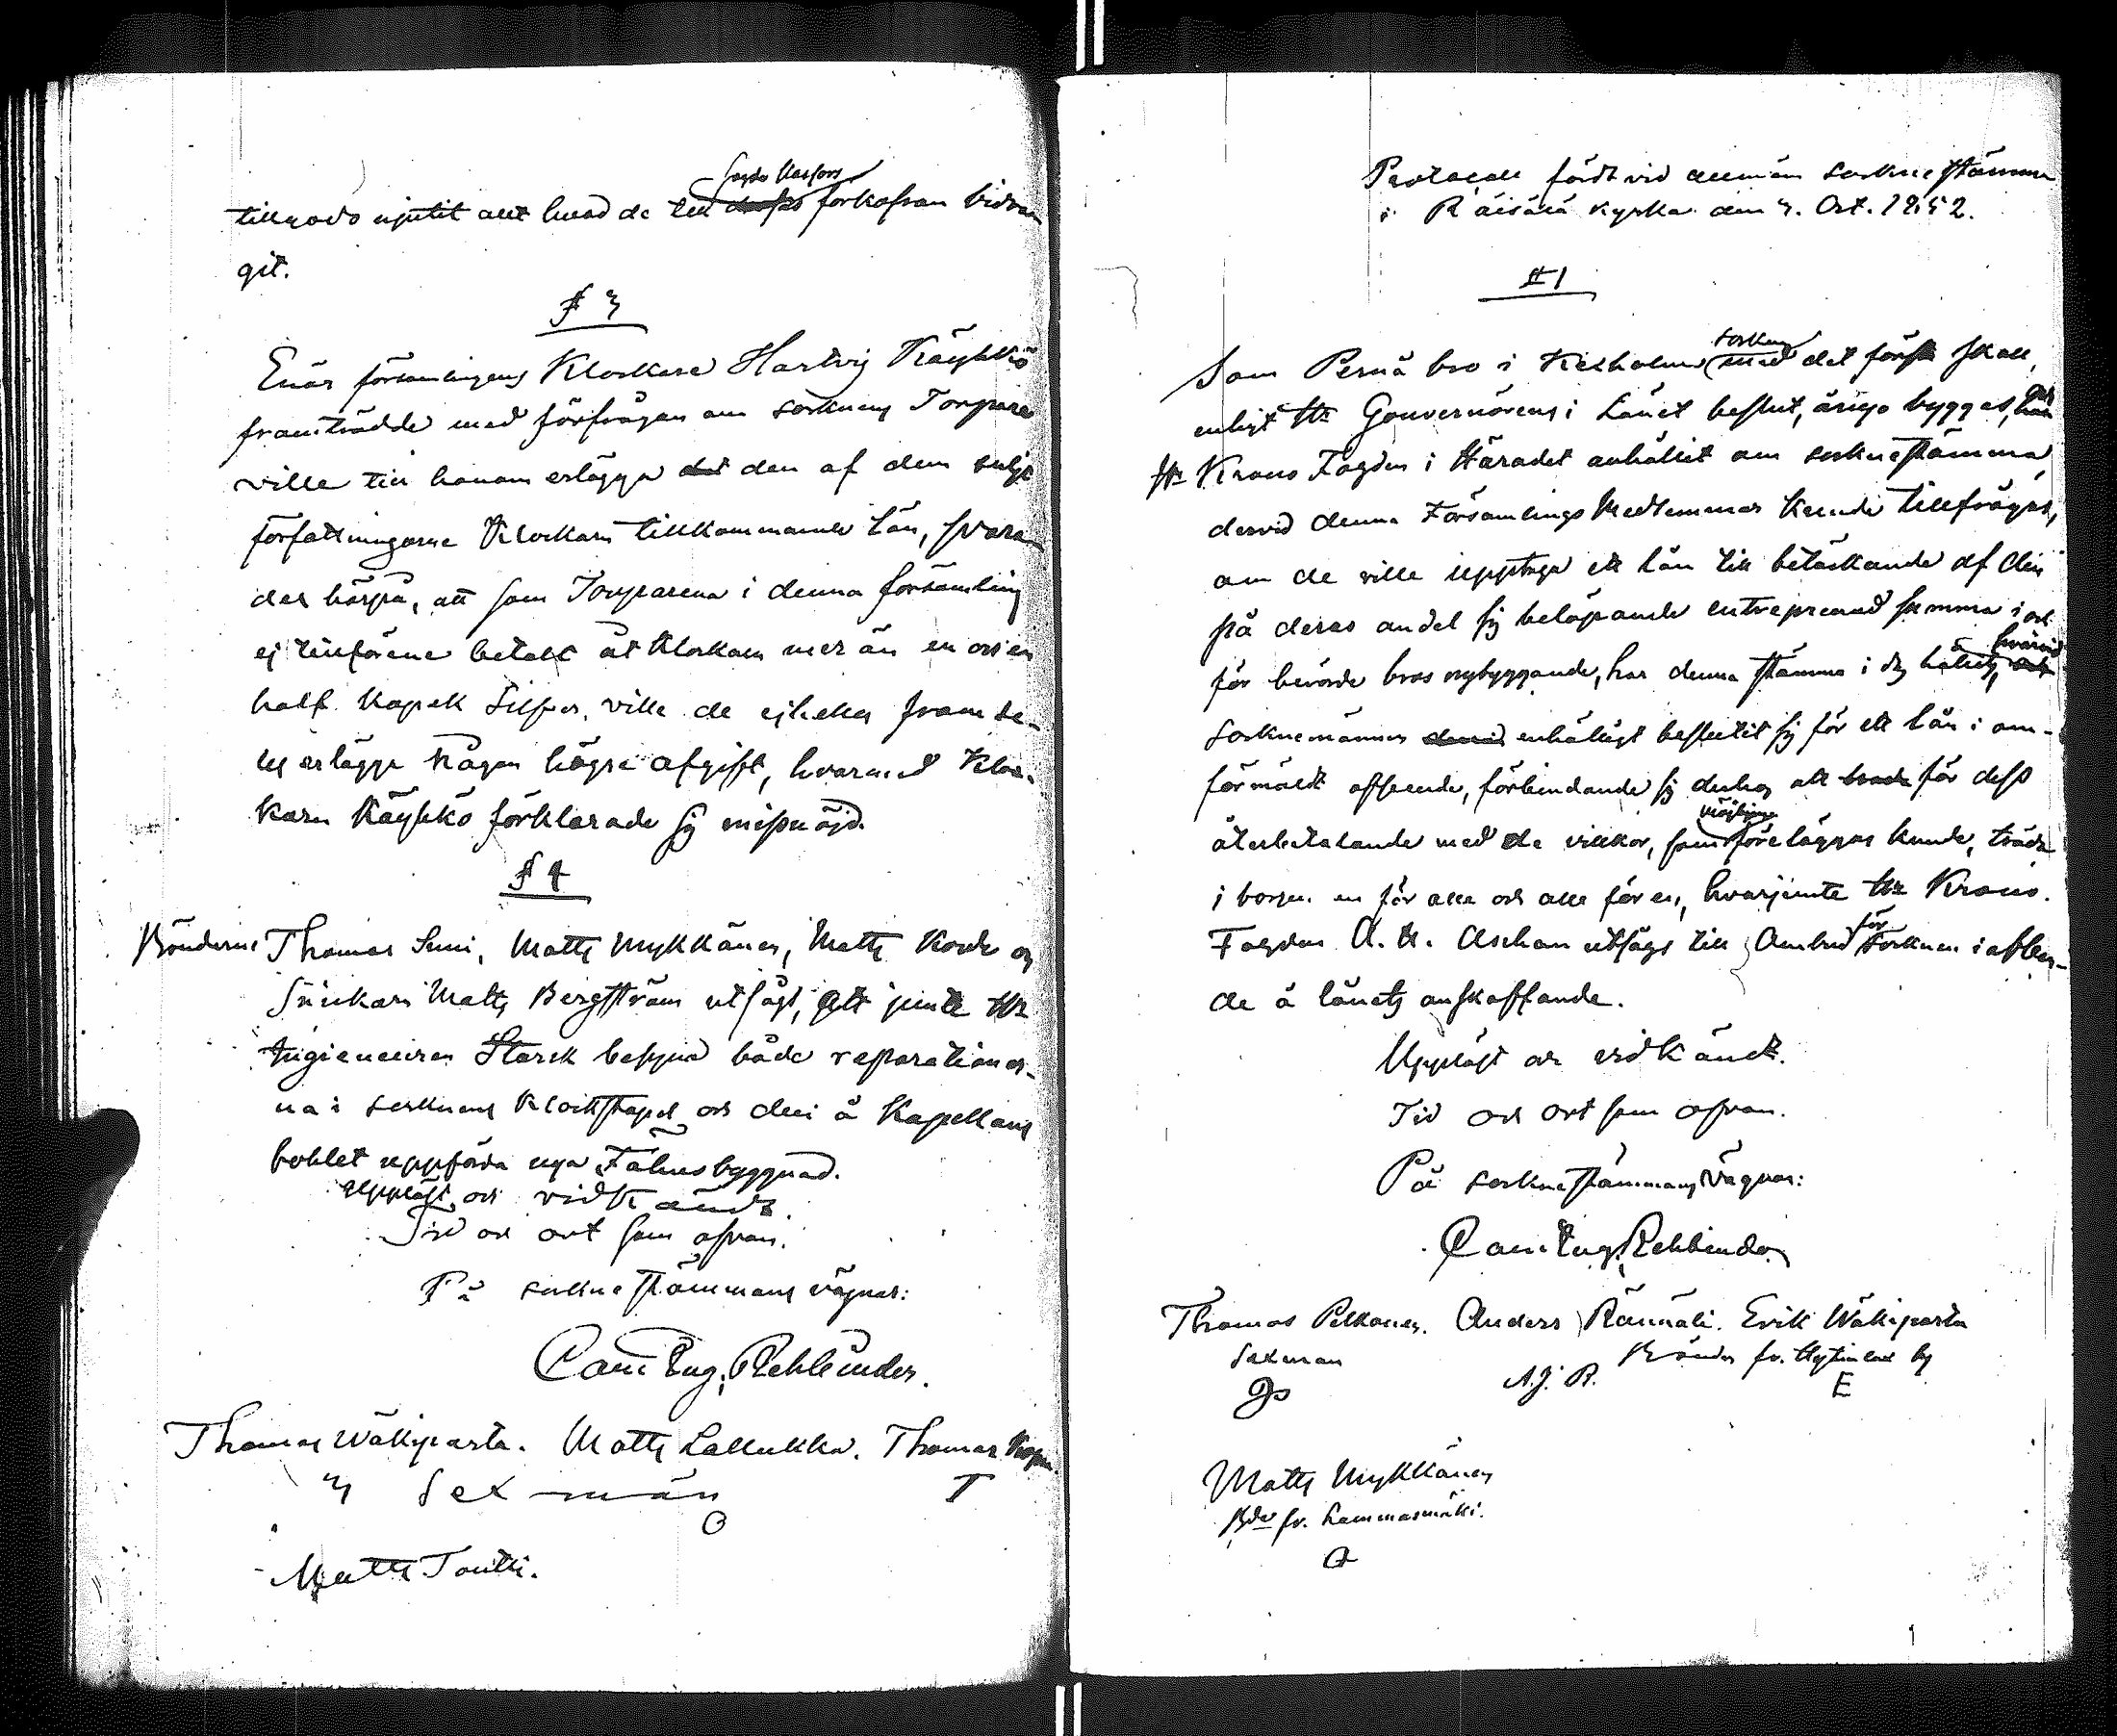 Sagde Kasfors
tillgodo njutit allt hvad de till dessas förkofran bidra-
git.
§ 3
Enär församlingens Klockare Hartvig Käyhkö
framträdde med förfrågan om socknens Torpare
ville till honom erlägga det den af dem enligt
författningarne Klockarn tillkommande lön, svara-
des härpå, att som Torparena i denna församling
ej tillförene betalt åt Klockarn mer än en och en
half kopek Silfver, ville de ej heller framde-
les erlägga någon högre afgift, hvarmed Kloc-
karn Käyhkö förklarade sig missnöjd.
§ 4
Bönderne Thomas Suni, Matts Mykkänen, Matts Korde och
Snickarn Matts Bergström utsågs, att jemte Hr
Ingieneuren Starck besyna både reparationer-
na i socknens Klockstapel och den å Kapellans
bohlet uppförda nya Fähusbyggnad.
Uppläst och vidkändt.
Tid och ort som ofvan.
På sockne stämmans vägnar:
Carl Eug. Rehbinder.
Thomas Wäkiparta. Matts Lallukka. Thomas
Sexmän T
O
Matts Toutti.
Protocoll fördt vid allmän Sockne stämma
i Räisälä kyrka den 3. Oct. 1852.
§ 1
socken
Som Pernä bro i Kexholms med det första skall,
enligt Hr Gouverneurens i Länet beslut, å nyo byggas, har
Hr Krono Fogden i Häradet anhållit om sockne stämma,
dervid denna Församlings Medlemmar kunde tillfrågas,
om de ville upptaga ett lån till betäckande af den
på deras andel sig belöpande entreprenad summa i och
för berörde bros nybyggande, har denna stämma i dag hållits, hvarvid
Socknemännen dervid enhälligt beslutit sig för ett lån i om-
förmäldt afseende, förbindande sig derhos att för dess
möjligen
återbetalande med de villkor, som föreläggas kunde, träda
i borgen en för alla och alla för en, hvarjemte Hr Krono
Fogden A. H. Aschan utsågs till Ombud för Socknen i afseen-
de å lånets anskaffande.
Uppläst och vidkändt.
Tid och ort som ofvan.
På sockne stämmans vägnar:
Carl Eug. Rehbinder
Thomas Pelkonen. Anders Rännäli. Erik Wäkiparta
Sexman Bönder fr. Hytinlax by
A.J.R. E
Matts Mykkänen
Bde fr. Hammasmäki.